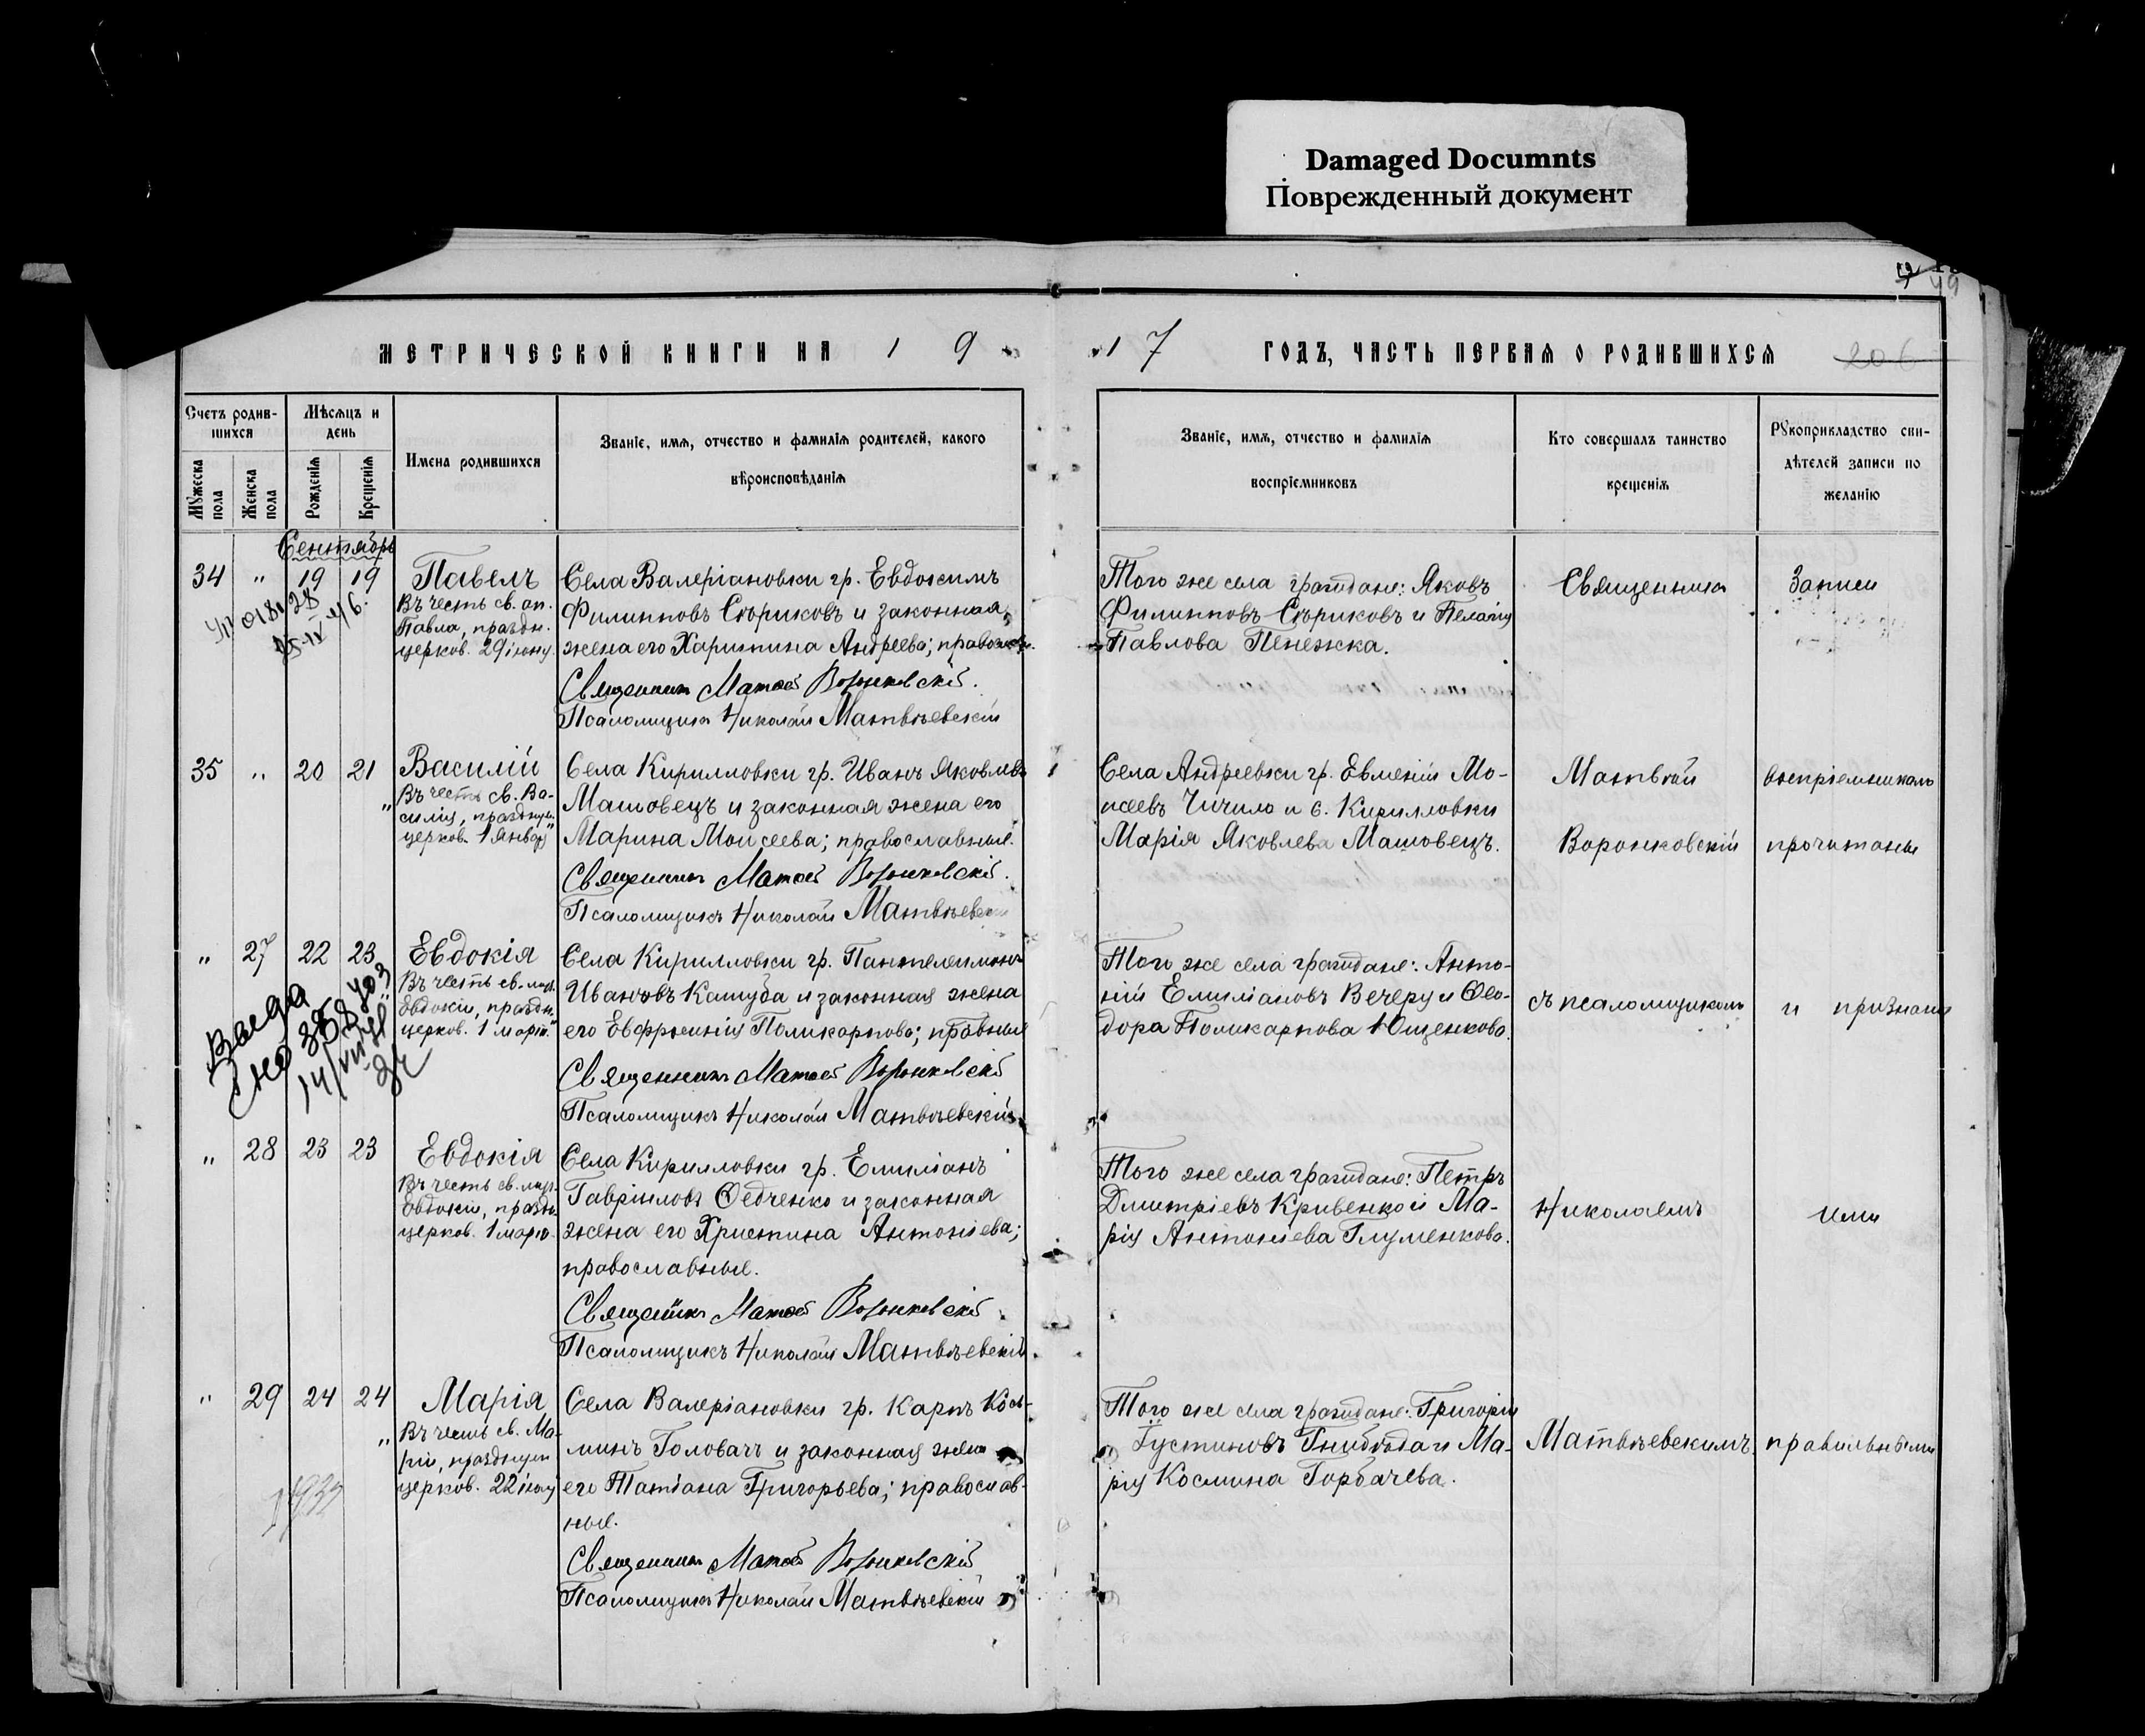 Damaged Documnts
Поврежденный документ
49
МЕТРИЧЕСКОЙ КНИГИ НА 1 9 1 7 ГОДЪ, ЧАСТЬ ПЕРВАЯ О РОДИВШИХСЯ 206
Счетъ родив-
шихся
Мужеска пола
Женска пола
Мѣсяцъ и
день
Рожденія
Крещенія
Имена родившихся
Званіе, имя, отчество и фамилія родителей, какого
вѣроисповѣданія
Званіе, имя, отчество и фамилія
воспріемниковъ
Кто совершалъ таинство
крещенія
Рукоприкладство сви-
дѣтелей записи по
желанію
Сентябрь
34 " 19 19
Павелъ
Въ честь св. ап.
Павла, праздн.
церков. 29 іюня
Села Валеріановки гр. Евдокимъ
Филипповъ Сѣриковъ и законная
жена его Харитина Андреева;
Священникъ Матвей Воронковскій.
Псаломщикъ Николай Матвѣевскій
Того же села граждане: Яковъ
Филипповъ Сѣриковъ и Пелагія
Павлова Пенежка.
Священникъ
Записи
35 " 20 21
Василій
Въ честь св. Ва-
силія, празднуем.
церков. 1 Января
Села Кирилловки гр. Иванъ Яковлевъ
Машовецъ и законная жена его
Марина Моисеева; православные.
Священникъ Матвей Воронковскій.
Псаломщикъ Николай Матвѣевскій
Села Андреевки гр. Евмений Мо-
исеевъ Чичило и с. Кирилловки
Марія Яковлева Машовецъ.
Матвѣй
Воронковскій
воспріемникамъ
прочитаны
" 27 22 23
Евдокія
Въ честь св. мар.
Евдокіи, праздн.
церков. 1 марта
Села Кирилловки гр. Пантелеимонъ
Ивановъ Кашуба и законная жена
его Евфросинія Поликарпова; правные
Священникъ Матвей Воронковскій
Псаломщикъ Николай Матвѣевскій
Того же села граждане: Анто-
ній Емиліановъ Вечеру и Ѳео-
дора Поликарпова Ющенкова.
съ псаломщикомъ
и признаны
" 28 23 23
Евдокія
Въ честь св. мар.
Евдокіи, праздн.
церков. 1 марта.
Села Кирилловки гр. Емиліанъ
Гавріиловъ Ѳедченко и законная
жена его Христина Антоніева;
православные.
Священникъ Матвей Воронковскій
Псаломщикъ Николай Матвѣевскій
Того же села граждане: Петръ
Дмитріевъ Кривенко и Ма-
рія Антоніева Глуменкова.
Николаемъ
ими
" 29 24 24
Марія
Въ честь св. Ма-
ріи, празднуем
церков. 22 іюля
1933
Села Валеріановки гр. Карпъ Кось-
минъ Головачъ и законная жена
его Татіана Григорьева; православ-
ные.
Священникъ Матвей Воронковскій
Псаломщикъ Николай Матвѣевскій
Того же села граждане: Григорій
Іустиновъ и Ма-
рія Космина Горбачева.
Матвѣевскимъ
правильными